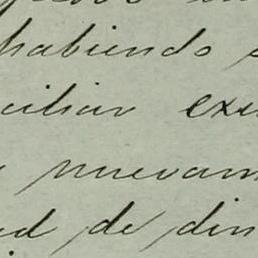 habiendo
ciliar exu
nuevam
ed de din